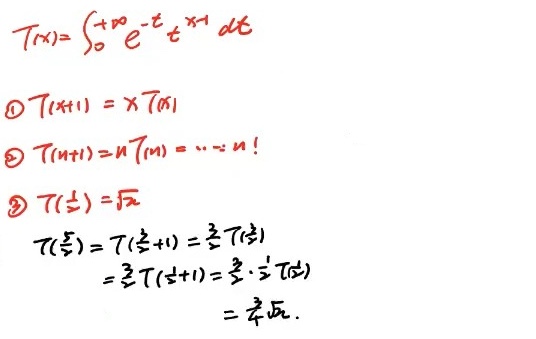 Γ(x) = ∫₀^{+∞} e^{-t} t^{x-1} dt
① Γ(x+1) = x Γ(x)
② Γ(n+1) = n Γ(n) = ... = n!
③ Γ(1/2) = √π
Γ(5/2) = Γ(3/2+1) = 3/2 Γ(3/2)
= 3/2 Γ(1/2+1) = 3/2 · 1/2 Γ(1/2)
= 3/4 √π.